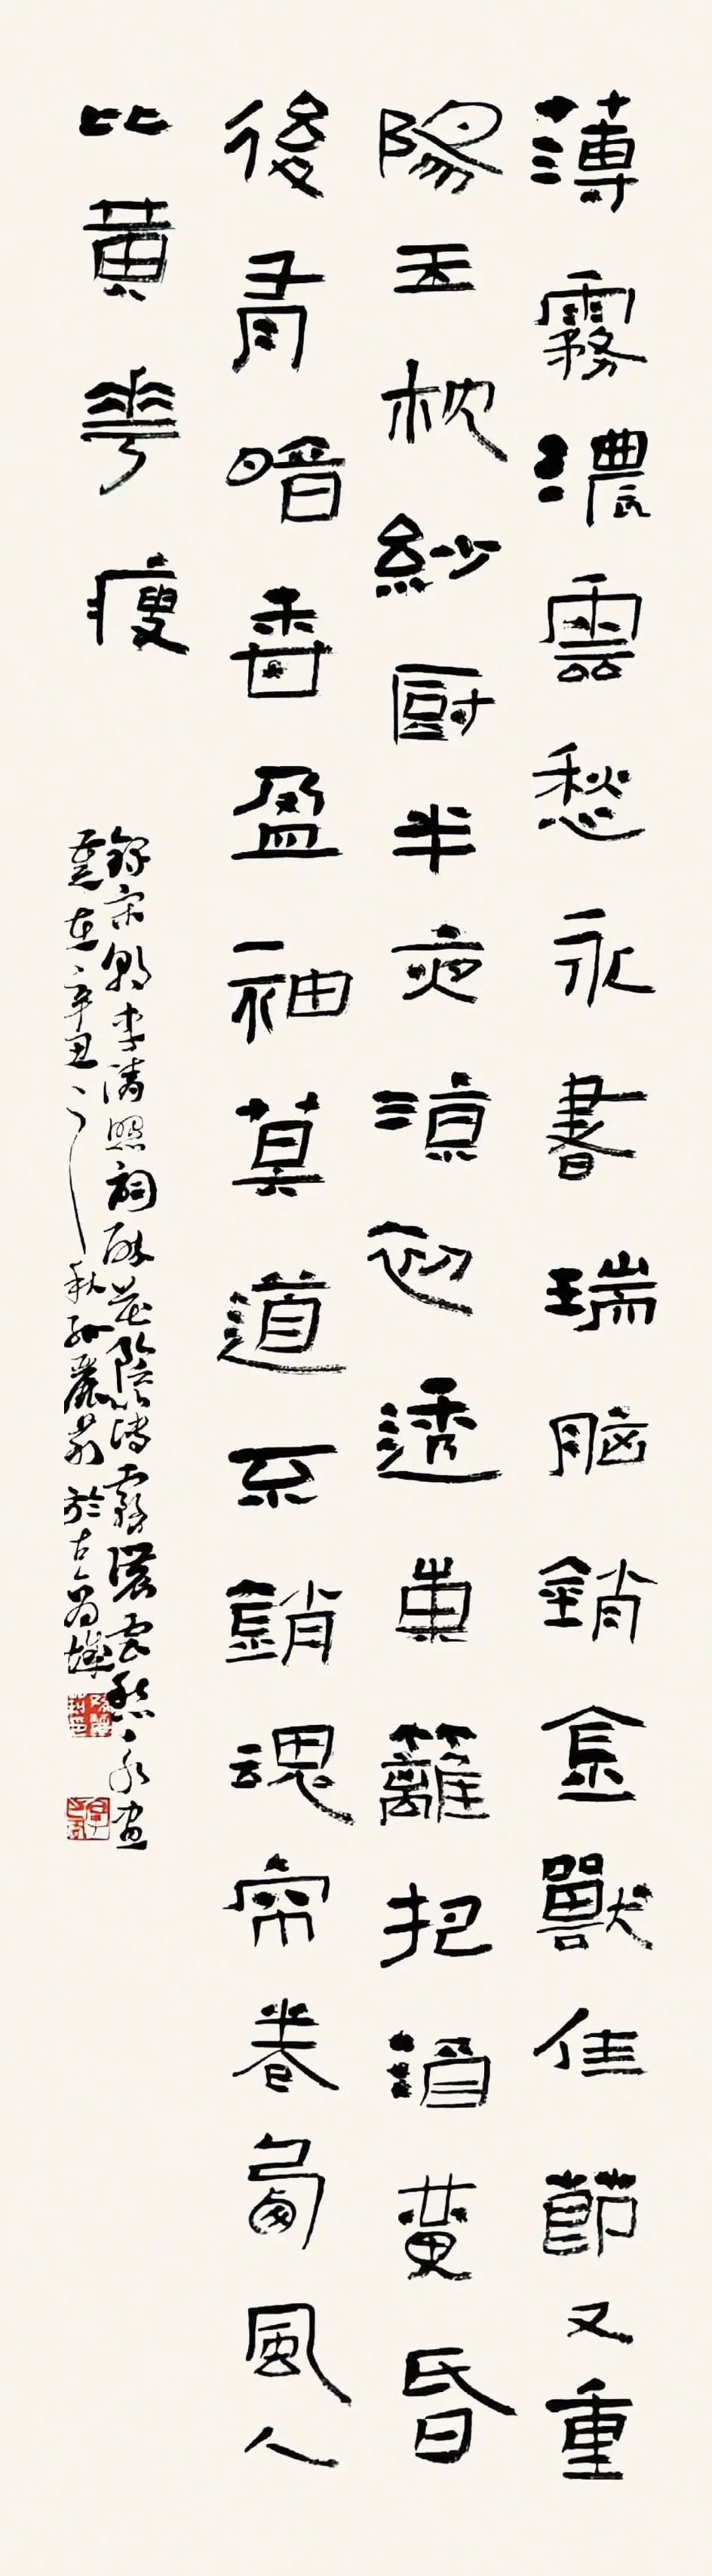 薄霧濃雲愁永晝瑞脑銷金獸佳節又重
陽玉枕紗厨半夜涼初透東籬把酒黄昏
後有暗香盈袖莫道不銷魂帘卷西風人
比黄華瘦
錄宋朝李清照詞醉花陰薄霧濃雲愁永昼
歲在辛丑之秋孫麗莉於古